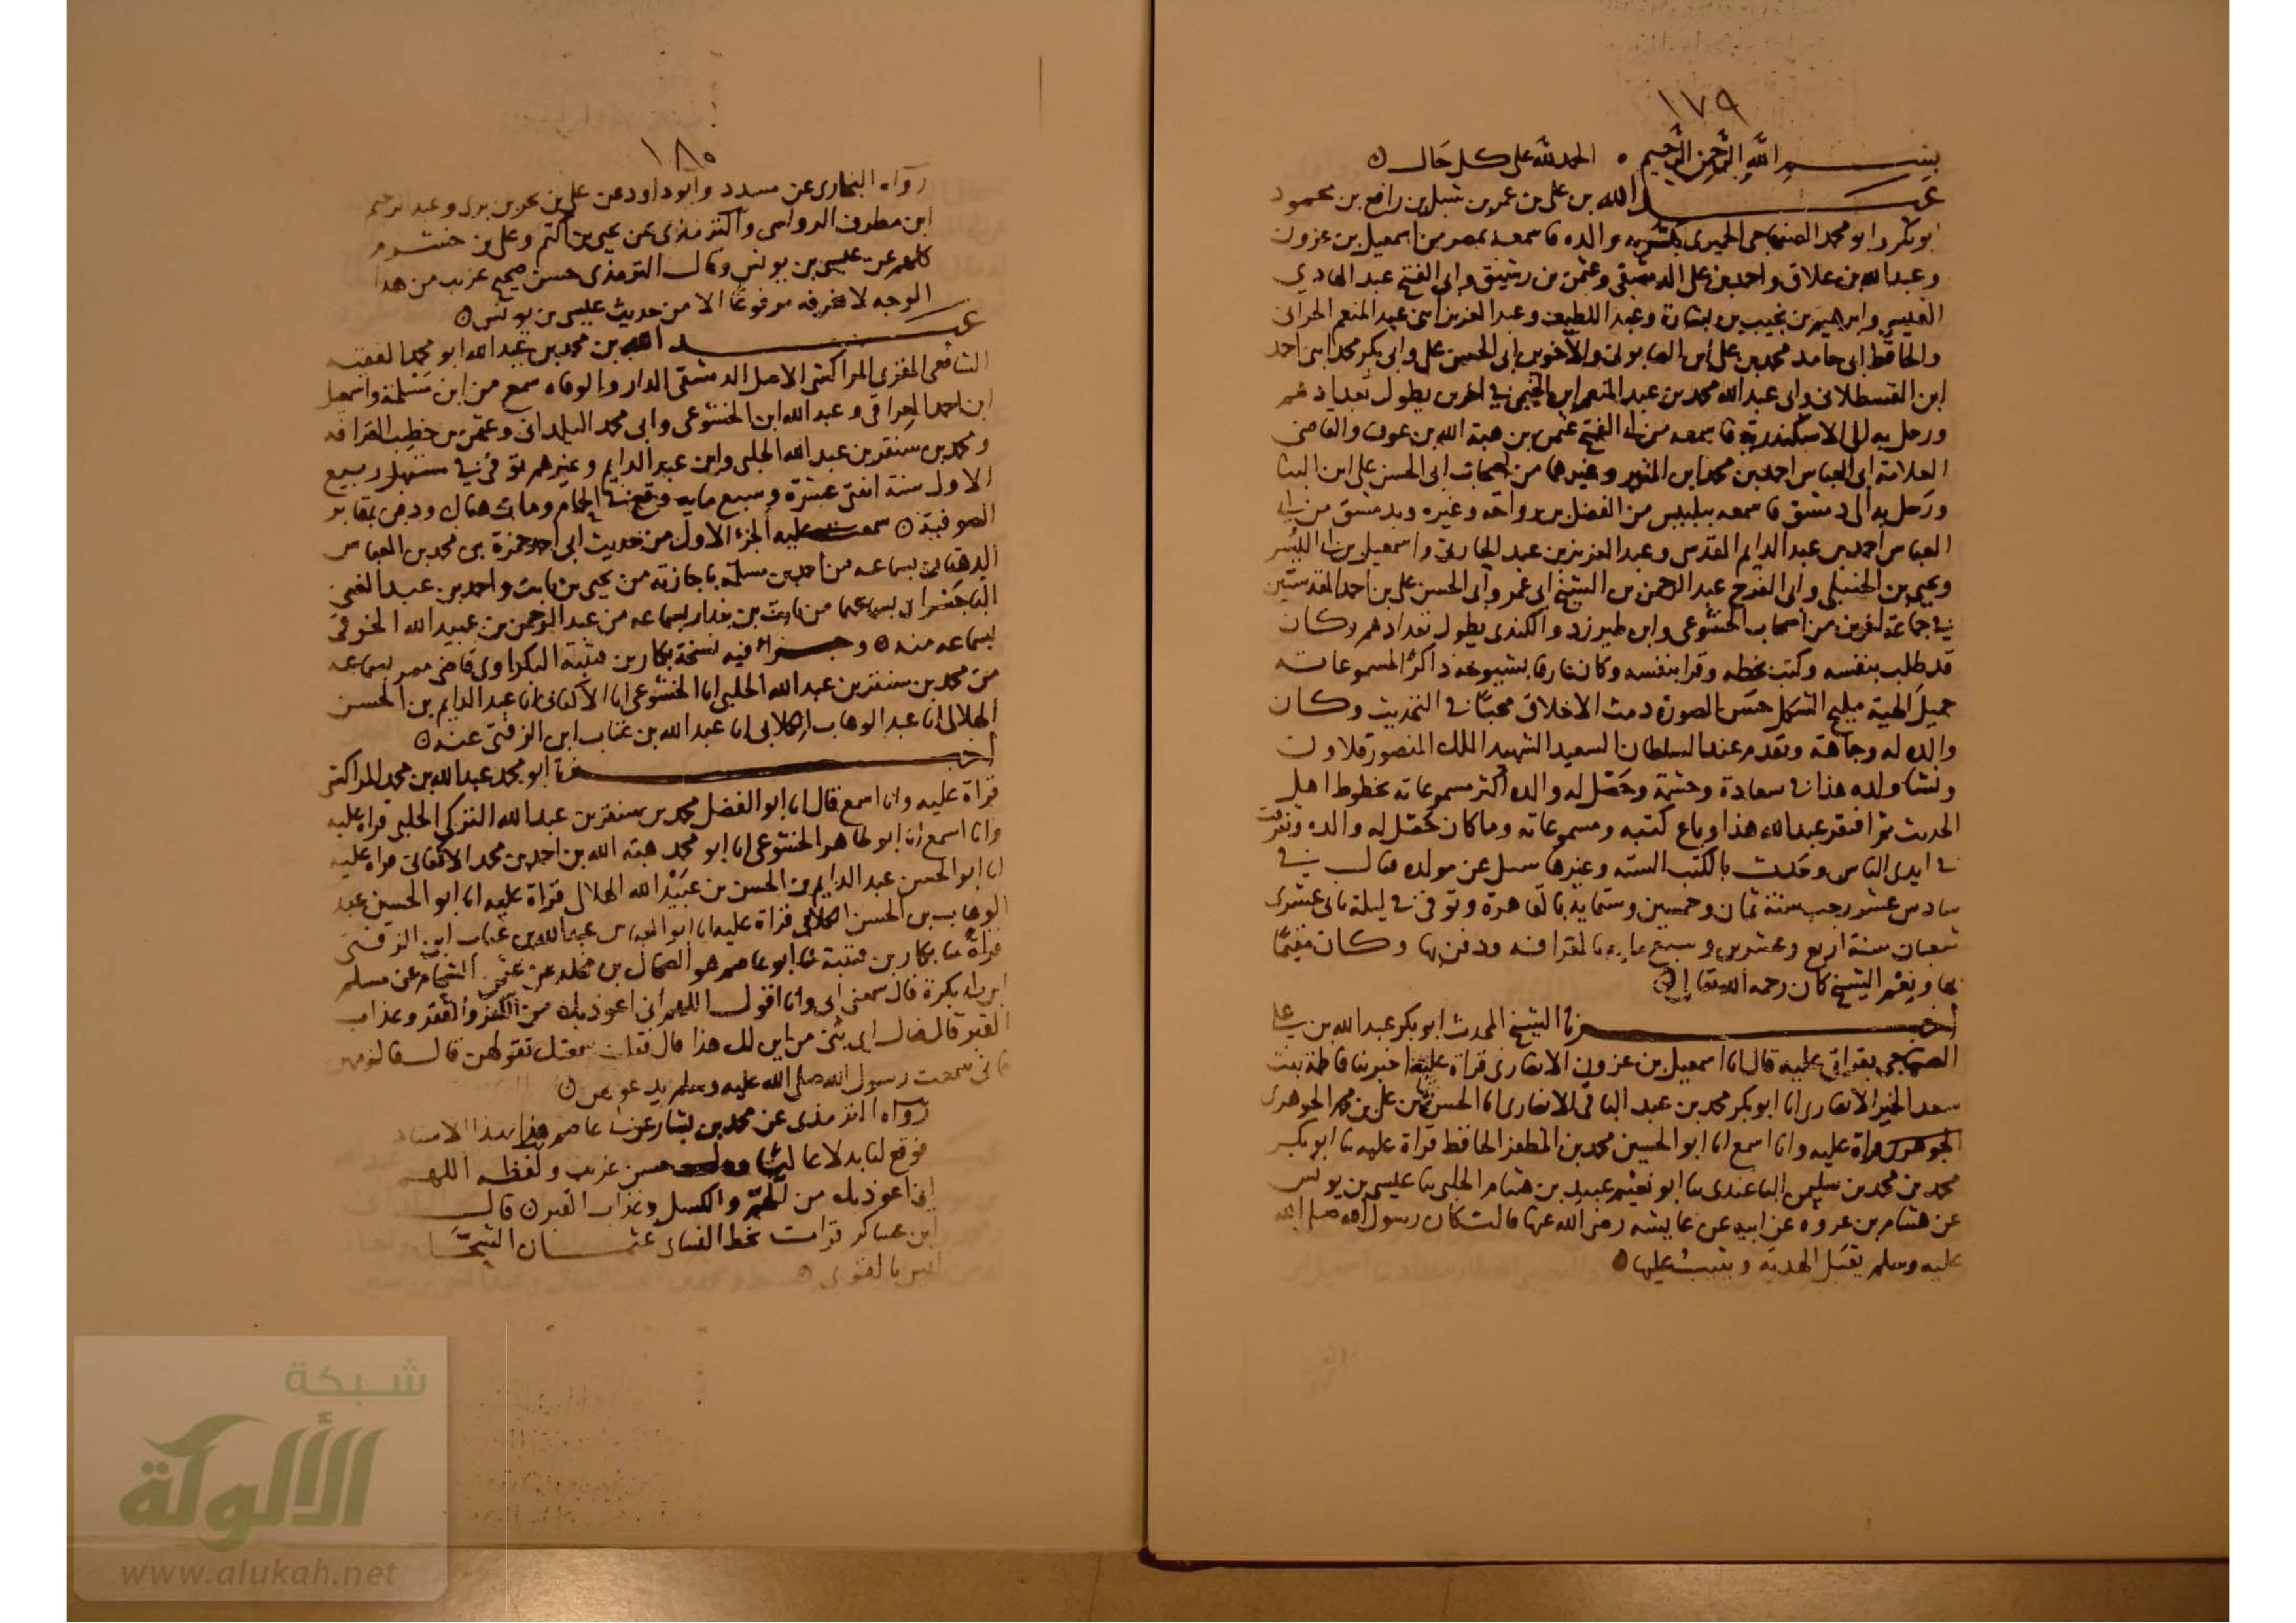 ١٧٩
بسم الله الرحمن الرحيم ○ الحمد لله على كل حال ○
عبد الله بن علي بن عمر بن شبل بن رافع بن محمود
ابو بكر وابو محمد الصنهاجي الحميري والده فاسمعه بمصر من اسمعيل بن عزون
وعبد الله بن علاق واحمد بن علي الدمشقي وعثمن بن رشيق وابي الفتح عبد الهادي
القيسي وابرهيم بن نجيب بن بشارة وعبد اللطيف وعبد العزيز ابني عبد المنعم الحراني
والحافظ ابي حامد محمد بن علي ابن الصابوني والاخوين ابي الحسن علي وابي بكر محمد ابني احمد
ابن القسطلاني وابي عبد الله محمد بن عبد المنعم ابن الخيمي في اخرين يطول تعدادهم
ورحل به الى الاسكندرية فاسمعه من ابي الفتح عثمن بن هبة الله بن عوف والقاضي
العلامة ابي العباس احمد بن محمد ابن المنير وغيرهما من اصحاب ابي الحسن علي ابن البنا
ورحل به الى دمشق فاسمعه ببلبيس من الفضل بن رواحة وغيره وبدمشق من ابي
العباس احمد بن عبد الدايم المقدسي وعبد العزيز بن عبد الحارثي واسمعيل بن ابي اليسر
ويحيى بن الحنبلي وابي الفرج عبد الرحمن بن الشيخ ابي عمر وابي الحسن علي بن احمد المقدسيين
في جماعة اخرين من اصحاب الخشوعي وابن طبرزد والكندي يطول تعدادهم وكان
قد طلب بنفسه وكتب بخطه وقرا بنفسه وكان عارفا بشيوخه ذاكرا لمسموعاته
جميل الهية مليح الشكل حسن الصورة دمث الاخلاق محبا في التحديث وكان
والده له وجاهة وتقدم عند السلطان السعيد الشهيد الملك المنصور قلاون
ونشا ولده هذا في سعادة وحشمة وحصل له والده اكثر مسموعاته بخطوط اهل
الحديث ثم افتقر عبد الله هذا وباع كتبه ومسموعاته وما كان حصل له والده وتفرقت
في ايدي الناس وحدث بالكتب الستة وغيرها سيل عن مولده فقال في
سادس عشر رجب سنة ثمان وخمسين وستماية بالقاهرة وتوفي في ليلة ثاني عشري
شعبان سنة اربع وعشرين وسبع ماية بالقرافة ودفن بها وكان مقيما
بها ونعم الشيخ كان رحمه الله تعالى ○
اخبرنا الشيخ المحدث ابو بكر عبد الله بن علي
الصنهاجي بقراتي عليه قال انا اسمعيل بن عزون الانصاري قراة عليه اخبرتنا فاطمة بنت
سعد الخير الانصاري انا ابو بكر محمد بن عبد الباقي الانصاري انا الحسن بن علي بن محمد الجوهري
الجوهري قراة عليه وانا اسمع انا ابو الحسين محمد بن المظفر الحافظ قراة عليه نا ابو بكر
محمد بن محمد بن سليمن الباغندي نا ابو نعيم عبيد بن هشام الحلبي نا عيسى بن يونس
عن هشام بن عروة عن ابيه عن عايشة رضي الله عنها قالت كان رسول الله صلى الله
عليه وسلم يقبل الهدية ويثيب عليها ○
١٨٠
رواه البخاري عن مسدد وابو داود عن علي بن بحر بن بري وعبد الرحيم
ابن مطرف الرواسي والترمذي عن يحيى بن اكثم وعلي بن خشرم
كلهم عن عيسى بن يونس وقال الترمذي حسن صحيح غريب من هذا
الوجه لا نعرفه مرفوعا الا من حديث عيسى بن يونس ○
عبد الله بن محمد بن عبد الله ابو محمد الفقيه
الشافعي المقري المراكشي الاصل الدمشقي الدار والوفاه سمع من ابن مسلمة واسمعيل
ابن احمد العراقي وعبد الله ابن الخشوعي وابي محمد البلداني وعثمن بن خطيب القرافه
ومحمد بن سنقر بن عبد الله الحلبي وابن عبد الدايم وغيرهم توفي في مستهل ربيع
الاول سنة اثنتي عشرة وسبع مايه وقع في الحمام ومات هناك ودفن بمقابر
الصوفية ○ سمعت عليه الجزء الاول من حديث ابي احمد حمزة بن محمد بن العباس
الدهقان بسماعه من احمد بن مسلمة باجازته من يحيى بن ثابت واحمد بن عبد الغني
الباجسرائي بسماعهما من ثابت بن بندار بسماعه من عبد الرحمن بن عبيد الله الحرفي
بسماعه منه ○ وجزءا فيه نسخة بكار بن قتيبة البكراوي قاضي مصر بسماعه
من محمد بن سنقر بن عبد الله الحلبي انا الخشوعي انا الاكفاني انا عبد الدايم بن الحسن
الهلالي انا عبد الوهاب الكلابي انا عبد الله بن عتاب ابن الزفتي عنه ○
اخبرنا ابو محمد عبد الله بن محمد المراكشي
قراة عليه وانا اسمع قال انا ابو الفضل محمد بن سنقر بن عبد الله التركي الحلبي قراة عليه
وانا اسمع انا ابو طاهر الخشوعي انا ابو محمد هبة الله بن احمد بن محمد الاكفاني قراة عليه
انا ابو الحسن عبد الدايم بن الحسن بن عبيد الله الهلالي قراة عليه انا ابو الحسين عبد
الوهاب بن الحسن الكلابي قراة عليه انا ابو العباس عبد الله بن عتاب ابن الزفتي
قراة نا بكار بن قتيبة نا ابو عاصم هو الضحاك بن مخلد عن عثمن الشحام عن مسلم
ابن ابي بكرة قال سمعني ابي وانا اقول اللهم اني اعوذ بك من الكفر والفقر وعذاب
القبر قال فقال اي بني من اين لك هذا قال فقلت سمعتك تقولهن قال فالزمهن
فاني سمعت رسول الله صلى الله عليه وسلم يدعو بهن ○
رواه الترمذي عن محمد بن بشار عن ابي عاصم هذا بهذا الاسناد
فوقع لنا بدلا عاليا حسن غريب ولفظه اللهم
اني اعوذ بك من الهم والكسل وعذاب القبر ○ قال
ابن عساكر قرات بخط النساي عثمان الشحام
ليس بالقوي ○
شبكة
الألوكة
www.alukah.net